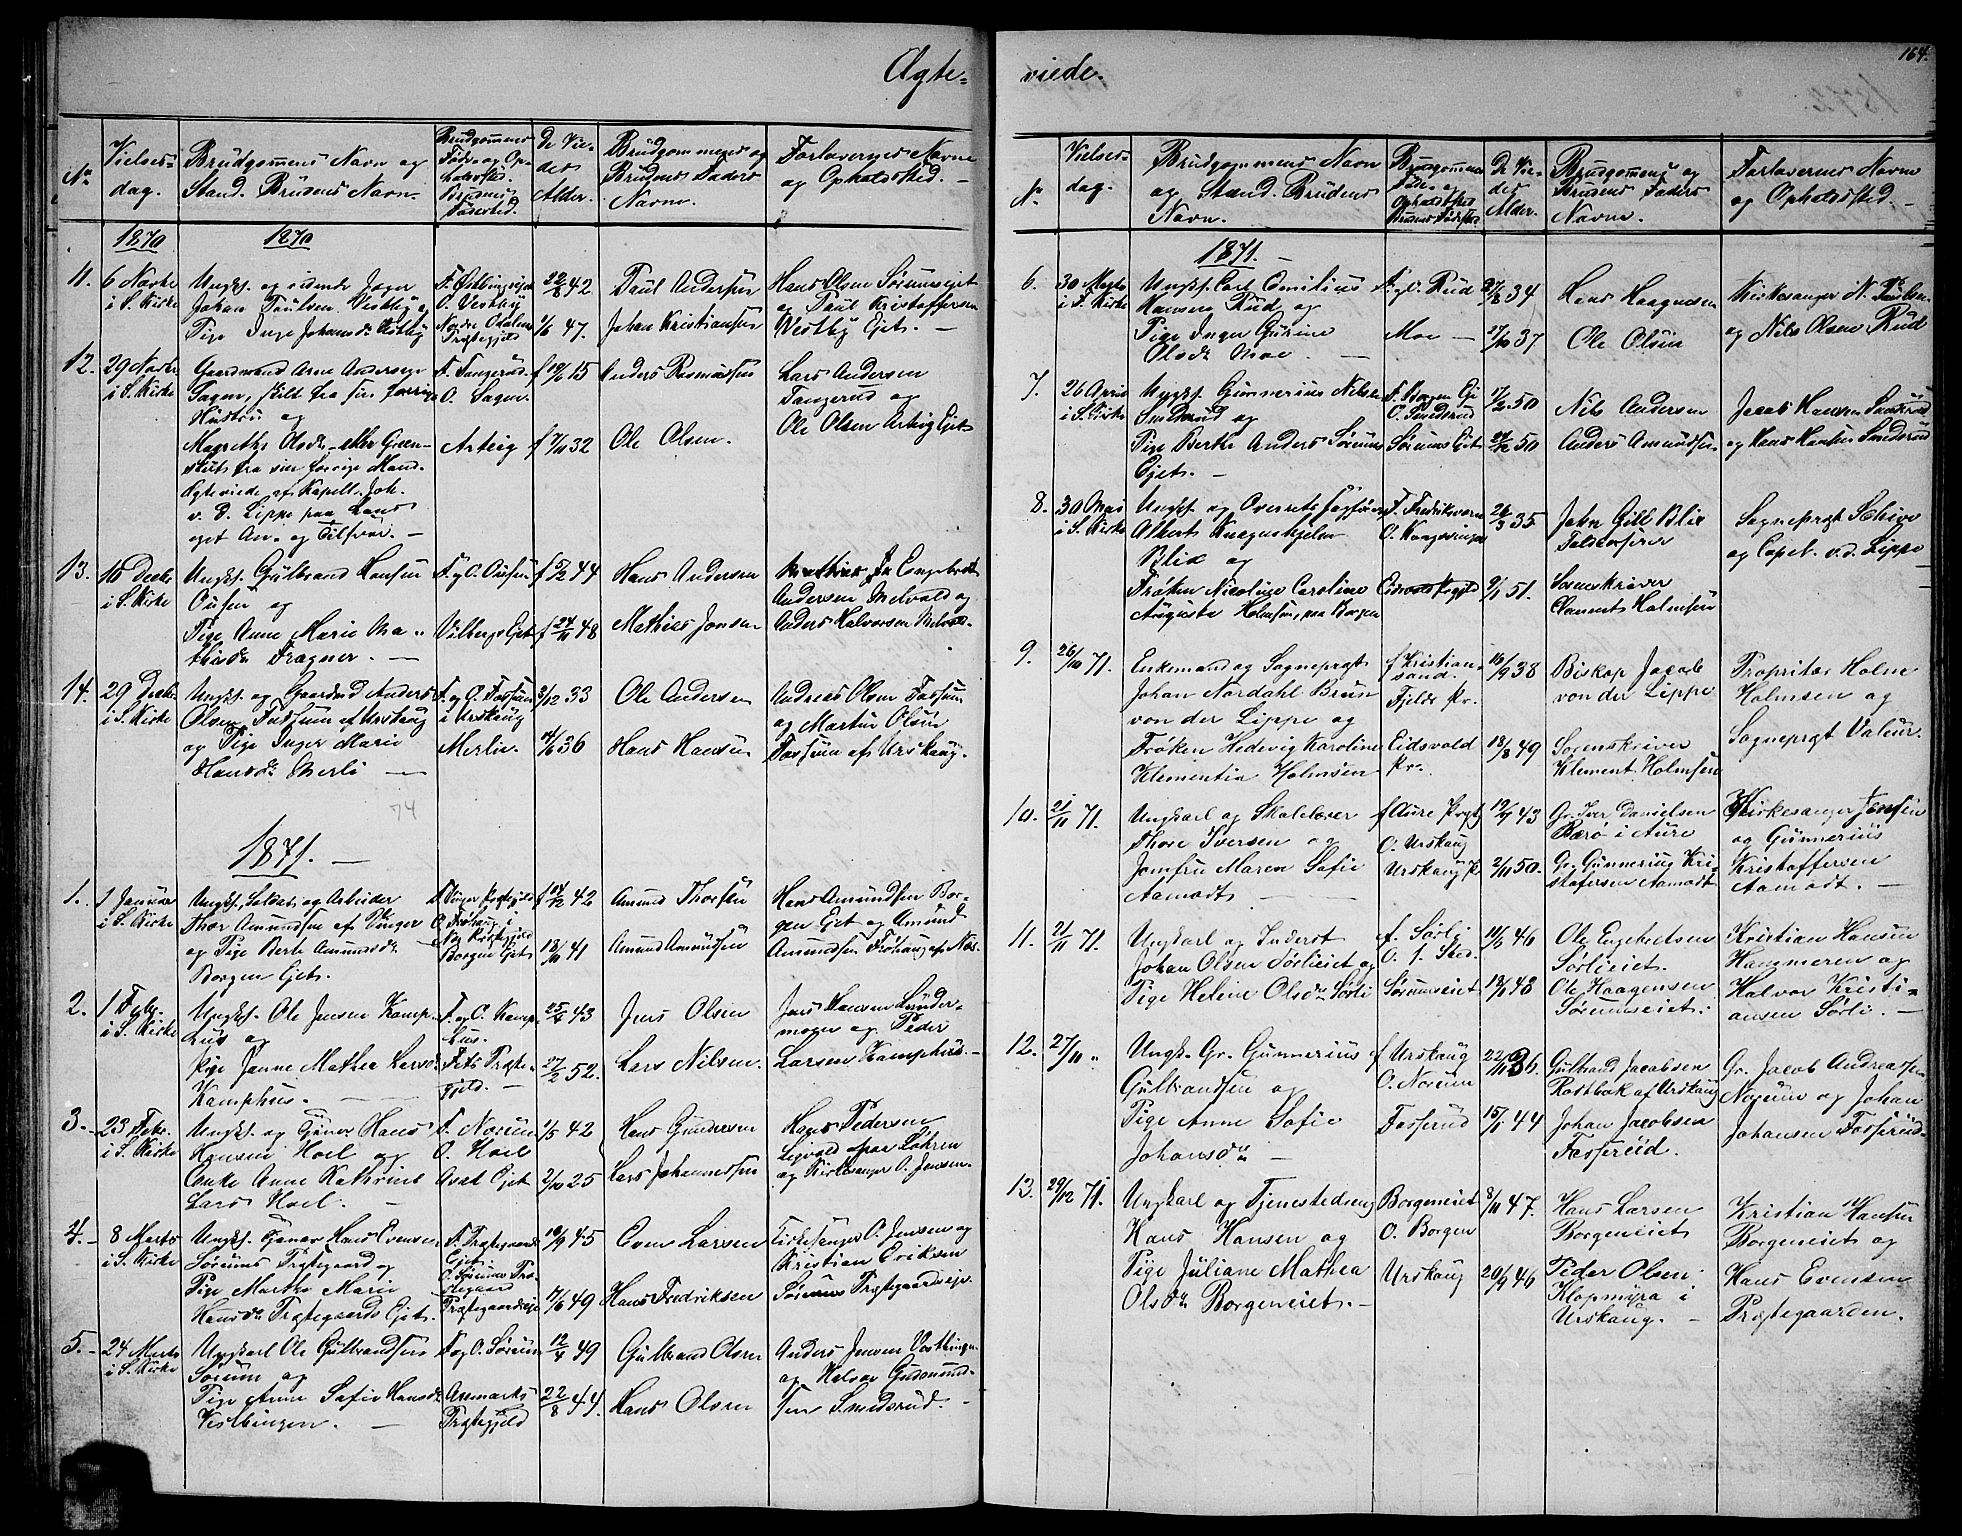 Ægte=
viede.
164.
No
Vielses=
dag.
Brudgommens Navn og
Stand. Brudens Navn.
Brudgommens
Føde- og Op-
holdssted.
Brudens
Fødested.
De Vie-
des
Alder.
Brudgommens og
Brudens Faders
Navne.
Forlovernes Navne
og Opholdssted. —
1870
1870
11.
6 Novbr
i S. Kirke
Ungk. og
Johan Paulsen Vestby og
Pige Inge Johansdr. Vestby
O. Vestby
Nordre Odalens
Præstegjeld
22/8 42
1/6 47.
Paul Andersen
Johan Kristiansen
Hans Olsen Sørumseiet
og Paul Kristoffersen
Vestby Ejet. —
12.
29 Novbr
i S. Kirke
Gaardmand Arne Andersen
Sagen, skilt fra sin forrige
Hustru og
Magrethe Olsdr.
skilt fra sin forrige Mand.
Ægteviede af Kapell. Joh.
v. d. Lippe paa Lands
F. Tangerud
O. Sagen
Arteig
f 19/6 15
f 7/10 32
Anders Rasmussen
Ole Olsen.
Lars Andersen
Tangerud og
Ole Olsen Arteig Ejet
13.
16 Decbr
i S. Kirke
Ungk. Gulbrand Hansen
Ousen og
Pige Anne Marie Ma=
thisdr. Fragner. —
F. og O. Ousen
Vilbergs Ejet
f 5/2 44
f 24/11 48
Hans Andersen
Mathies Jonsen
Engebret
Andersen Melvold og
Anders Halvorsen Melvold.
14.
29 Decbr
i S. Kirke
Ungk. og Gaardmd. Anders
Olsen Fossum af Urskoug
og Pige Inger Marie
Hansdr. Merli —
F. og O. Fossum
i Urskoug
Merli.
3/12 33
4/6 36
Ole Andersen
Hans Hansen
Andreas Olsen Fossum
og Martin Olsen
Fossum af Urskoug.
74
1871. —
1.
1 Januar
i S. Kirke
Ungk. Soldat og Arbeider
Thor Amundsen af Vinger
og Pige Berte Amundsdr.
Borgen Ejet.
F. Vinger Præstegjeld
O. Frøhaug i
Næs Præstegjeld
Borgen Ejet
f 24/12 42
18/11 41
Amund Thorsen
Amund Amundsen
Hans Amundsen Bor-
gen Ejet og Amund
Amundsen Frøhaug af Næs.
2.
1 Febr.
i S. Kirke
Ungk. Ole Jensen Kamp-
hus og
Pige Janne Mathea Larsdr.
Kamphus. —
F. og O. Kamp-
hus.
Fets Præste-
gjeld. —
25/4 43
27/2 52.
Jens Olsen
Lars Nilsen.
Jens Hansen Lunder-
moen og Peder
Larsen Kamphus. —
3.
23 Febr.
i S. Kirke
Ungk. og Tjener Hans
Hansen Hoel og
Enke Anne Kathrine
Lars Hoel. —
F. Norum
O. Hoel
Aset Ejet
2/5 42
2/10 25
Hans Gundersen
Lars Johannessen
Hans Pedersen
Ligvold paa Løhren
og Kirkesanger O. Jensen.
4.
8 Marts
i S. Kirke
Ungk. Tjener Hans Evensen
Sørums Præstegaard og
Pige Marthe Marie
Hansdr. Præstegaards Ejet.
F. Præstegaards
Ejet
O. Sørums Præ-
stegaard
Præstegaardseje
10/9 45
17/6 49
Even Larsen
Hans Fredriksen
Kirkesanger O. Jensen og
Kristian Eriksen
Sørums Præstegaardseje.
5.
24 Marts
i S. Kirke
Ungkarl Ole Gulbrandsen
Sørum og
Pige Anne Sofie Hansdr.
Vestbingen. —
F. og O. Sørum
Aremarks
Præstegjeld
12/4 49
22/8 44.
Gulbrand Olsen
Hans Olsen
Anders Jensen Vestbingen
og Halvor Gudmund-
sen Smedsrud. —
No
Vielses-
dag.
Brudgommens Navn
og Stand. Brudens
Navn.
Brudgommens
Føde- og
Opholdssted
Brudens Fødested
De Vie-
des
Alder.
Brudgommens og
Brudens Faders
Navne.
Forlovernes Navne
og Opholdssted. —
1871. —
6.
30 Marts
i S. Kirke
Ungk. Carl Emilius
Hansen Rud og
Pige Inger Gurine
Olsdr. Moe. —
F. og O. Rud
Moe —
27/8 34
17/10 37
Hans Haagensen
Ole Olsen
Kirkesanger N. Paulsen
og Nils Olsen Rud
7.
26 April
i S. Kirke
Ungk. Gunnerius Nilsen
Smedsrud og
Pige Berthe Anders Sørums
Ejet. —
F. Borgen Ej.
O. Smedsrud
Sørums Ejet
17/2 50
24/12 50
Nils Andersen
Anders Amundsen
Jacob Hansen
og Hans Hansen Smedsrud
8.
30 Mai
i S. Kirke
Ungk. og Overrets Sagfører
Albert Knagenhjelm
Blix og
Frøken Nicoline Caroline
Augusta Holmsen, paa Borgen
F. Fredriksværn
O. Kongsvinger
Eidsvold Prgjld
26/3 35
9/1 51.
John Gill Blix
Toldkasserer
Sorenskriver
Clament Holmsen
Sogneprest Schive
og Capel. v. d. Lippe
9.
26/10 71.
Enkemand og Sogneprest
Johan Nordahl Brun
von der Lippe og
Frøken Hedevig Karoline
Klementia Holmsen
f. Kristian-
sand.
Fjelds Pr.
Eidsvold
Pr.
16/9 38
18/8 49
Biskop Jacob
von der Lippe
Sorenskriver
Klement Holmsen
Proprietær Holm
Holmsen og
Sogneprest Valeur.
10.
21/11 71.
Ungkarl og Skolelærer
Thore Iversen og
Jomfru Maren Sofie
Aamodt —
f. Aure Prgj.
O. Urskoug
Urskoug Pr.
19/7 43
2/11 50.
Gr. Iver Danielsen
Bærø i Aure
Gr. Gunnerius Kri-
stofersen Aamodt.
Kirkesanger Jensen
og Gunnerius
Kristoffersen
Aamodt. —
11.
21/11 71.
Ungkarl og Inderst
Johan Olsen Sørlieiet og
Pige Helene Olsdr. Sørli
f. Sørli
O. s. Sted.
Sørumseiet
11/5 46
13/1 48
Ole Engebretsen
Sørlieiet.
Ole Haagensen
Sørumseiet.
Kristian Hansen
Hammeren og
Halvor Kristi-
ansen Sørli. —
12.
27/11 "
Ungk. Gr. Gunnerius
Gulbrandsen og
Pige Anne Sofie
Johansdr. —
f Urskoug
O. Norum
Fosserud
22/11 36.
15/1 44
Gulbrand Jacobsen
Rostbak af Urskoug
Johan Jacobsen
Fosserud.
Gr. Jacob Andreasen
Norum og Johan
Johansen Fosserud.
13.
29/12 71.
Ungkarl og Tjenestedreng
Hans Hansen og
Pige Juliane Mathea
Olsdr. Borgeneiet. —
Borgeneiet
O. Borgen
Urskoug
8/11 47.
20/9 46
Hans Larsen
Borgeneiet
Peder Olsen
Klopmyra i
Urskoug. —
Kristian Hansen
Borgeneiet og
Hans Evensen
Præstegaarden.